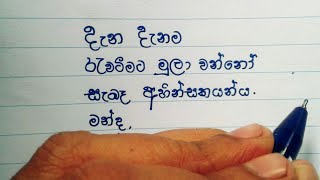 දැන දැනම
රැවටීමට මුලා වන්නෝ
සැබෑ අහින්සකයන්ය.
මන්ද,